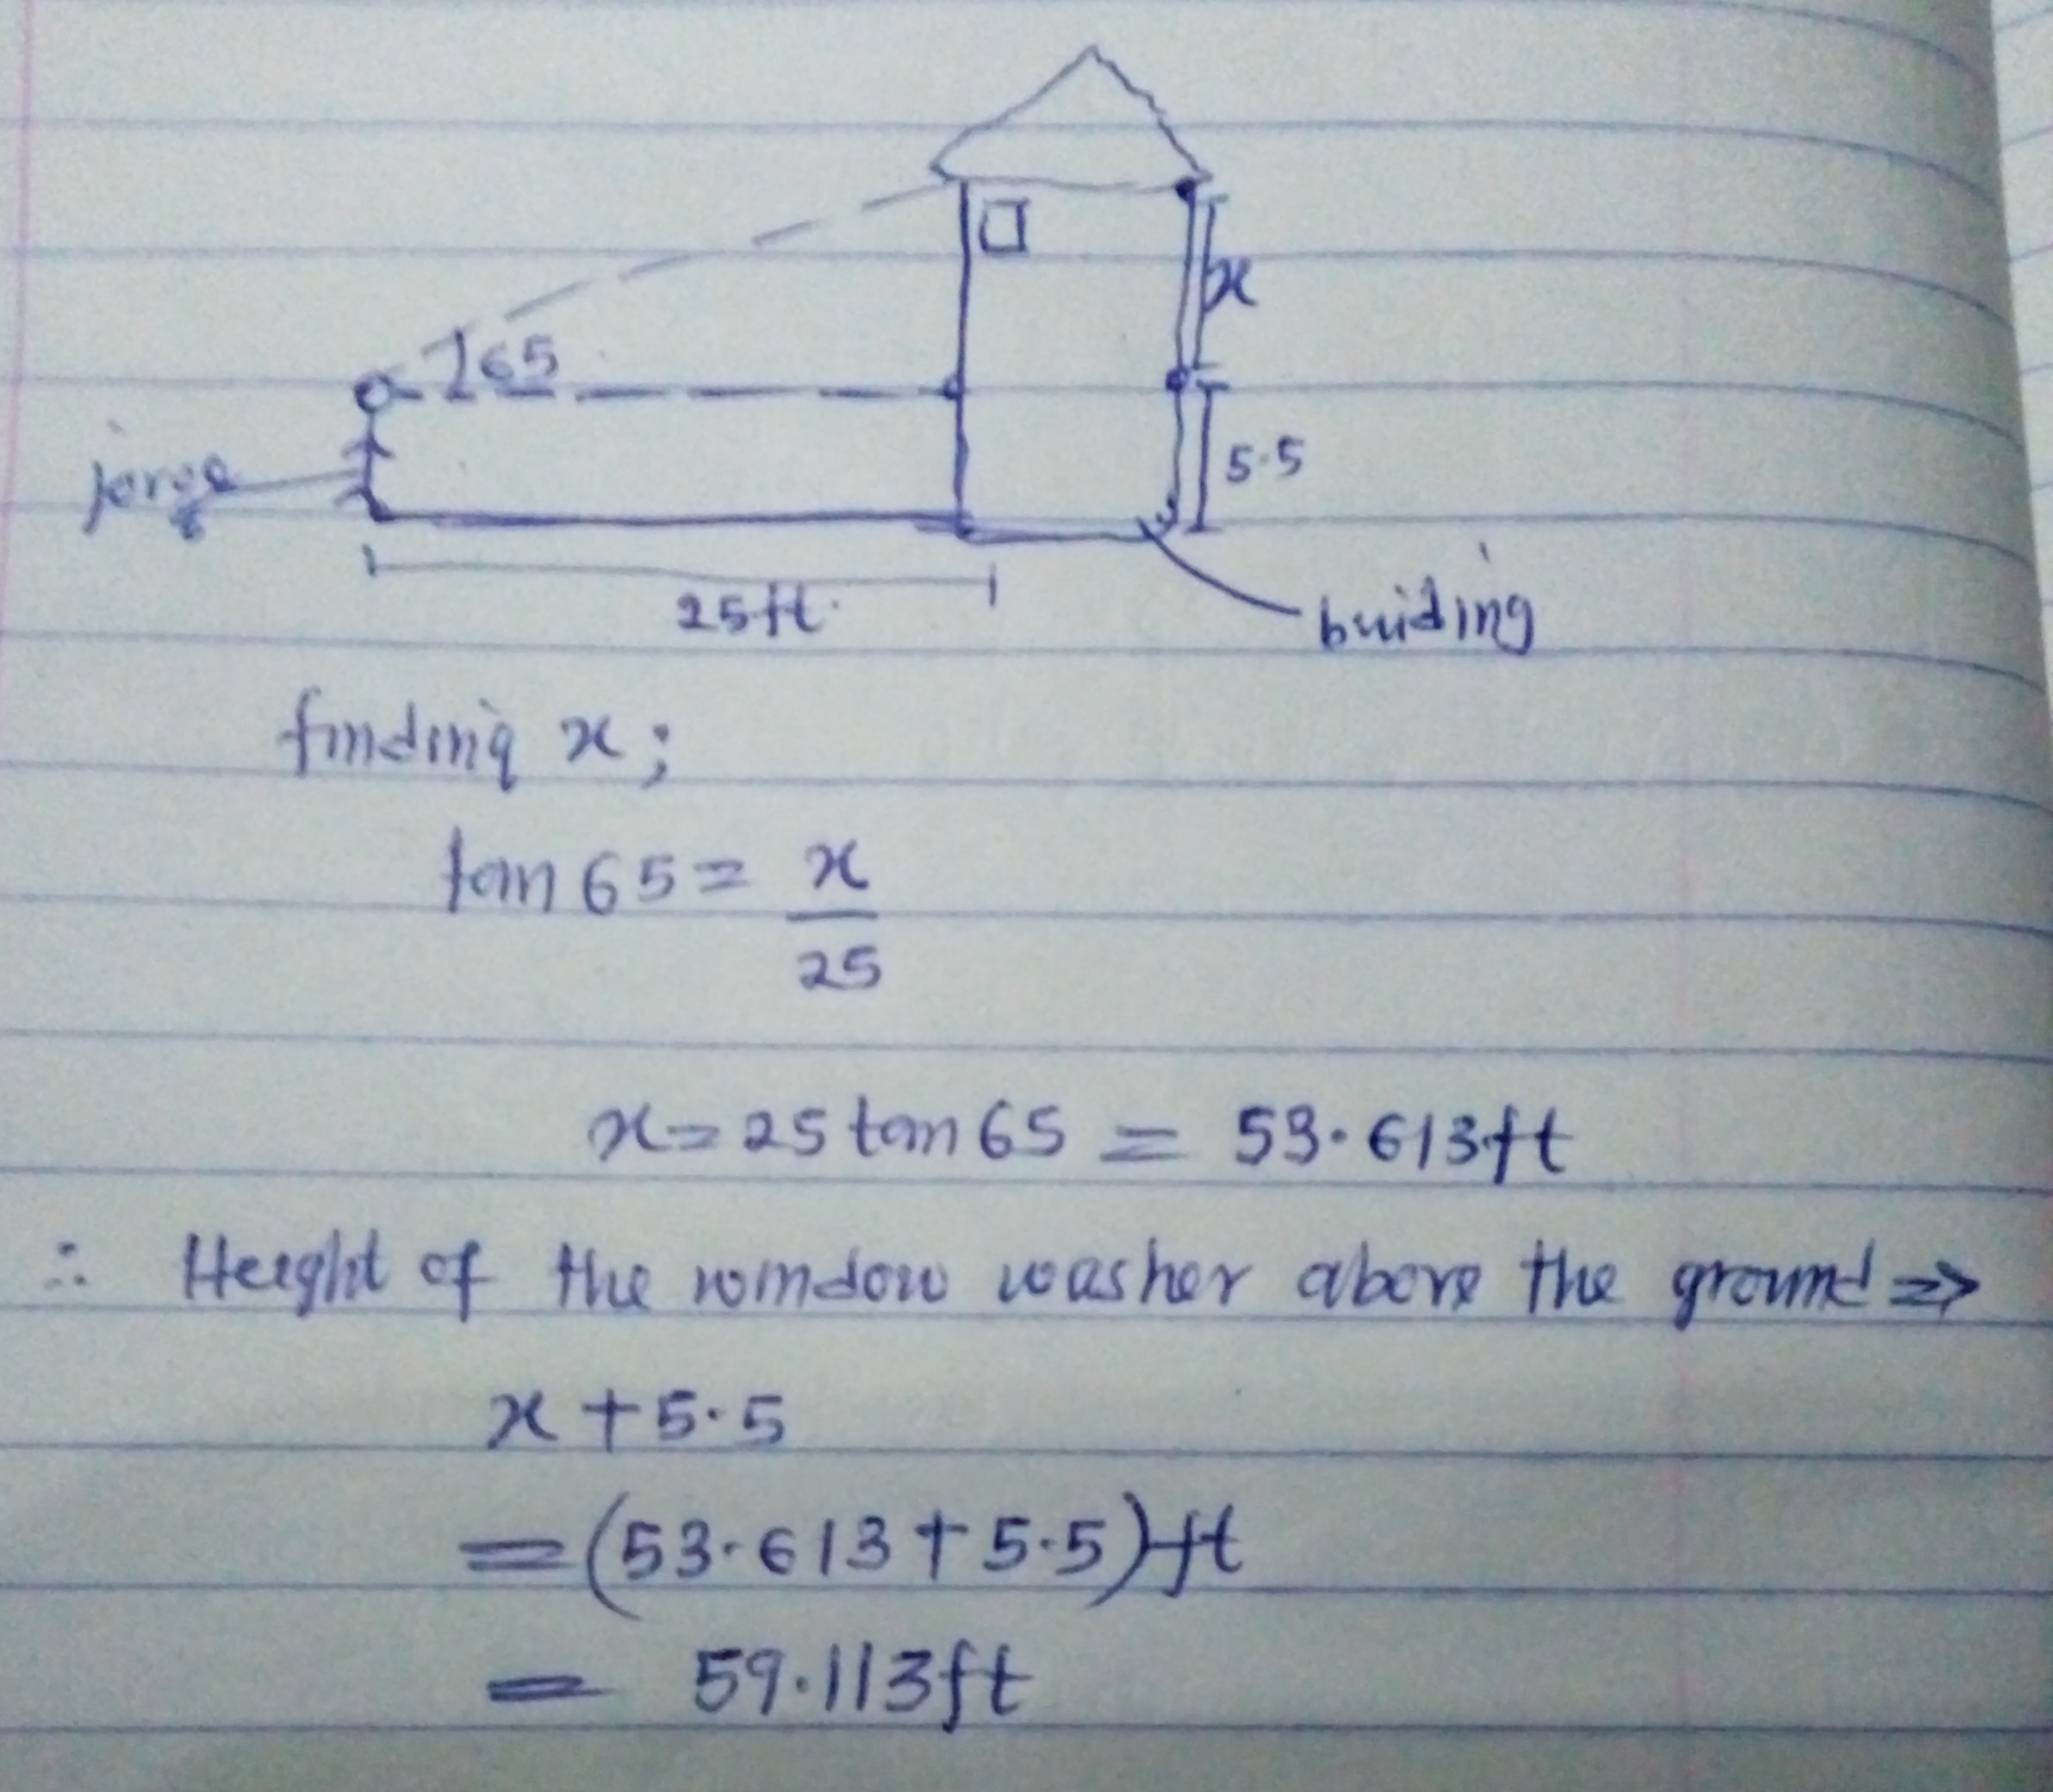 65
x
jorge
5.5
25ft.
buiding
finding x;
tan 65 = x
25
x = 25 tan 65 = 53.613ft
∴ Height of the window washer above the ground ⇒
x + 5.5
= (53.613 + 5.5) ft
= 59.113ft